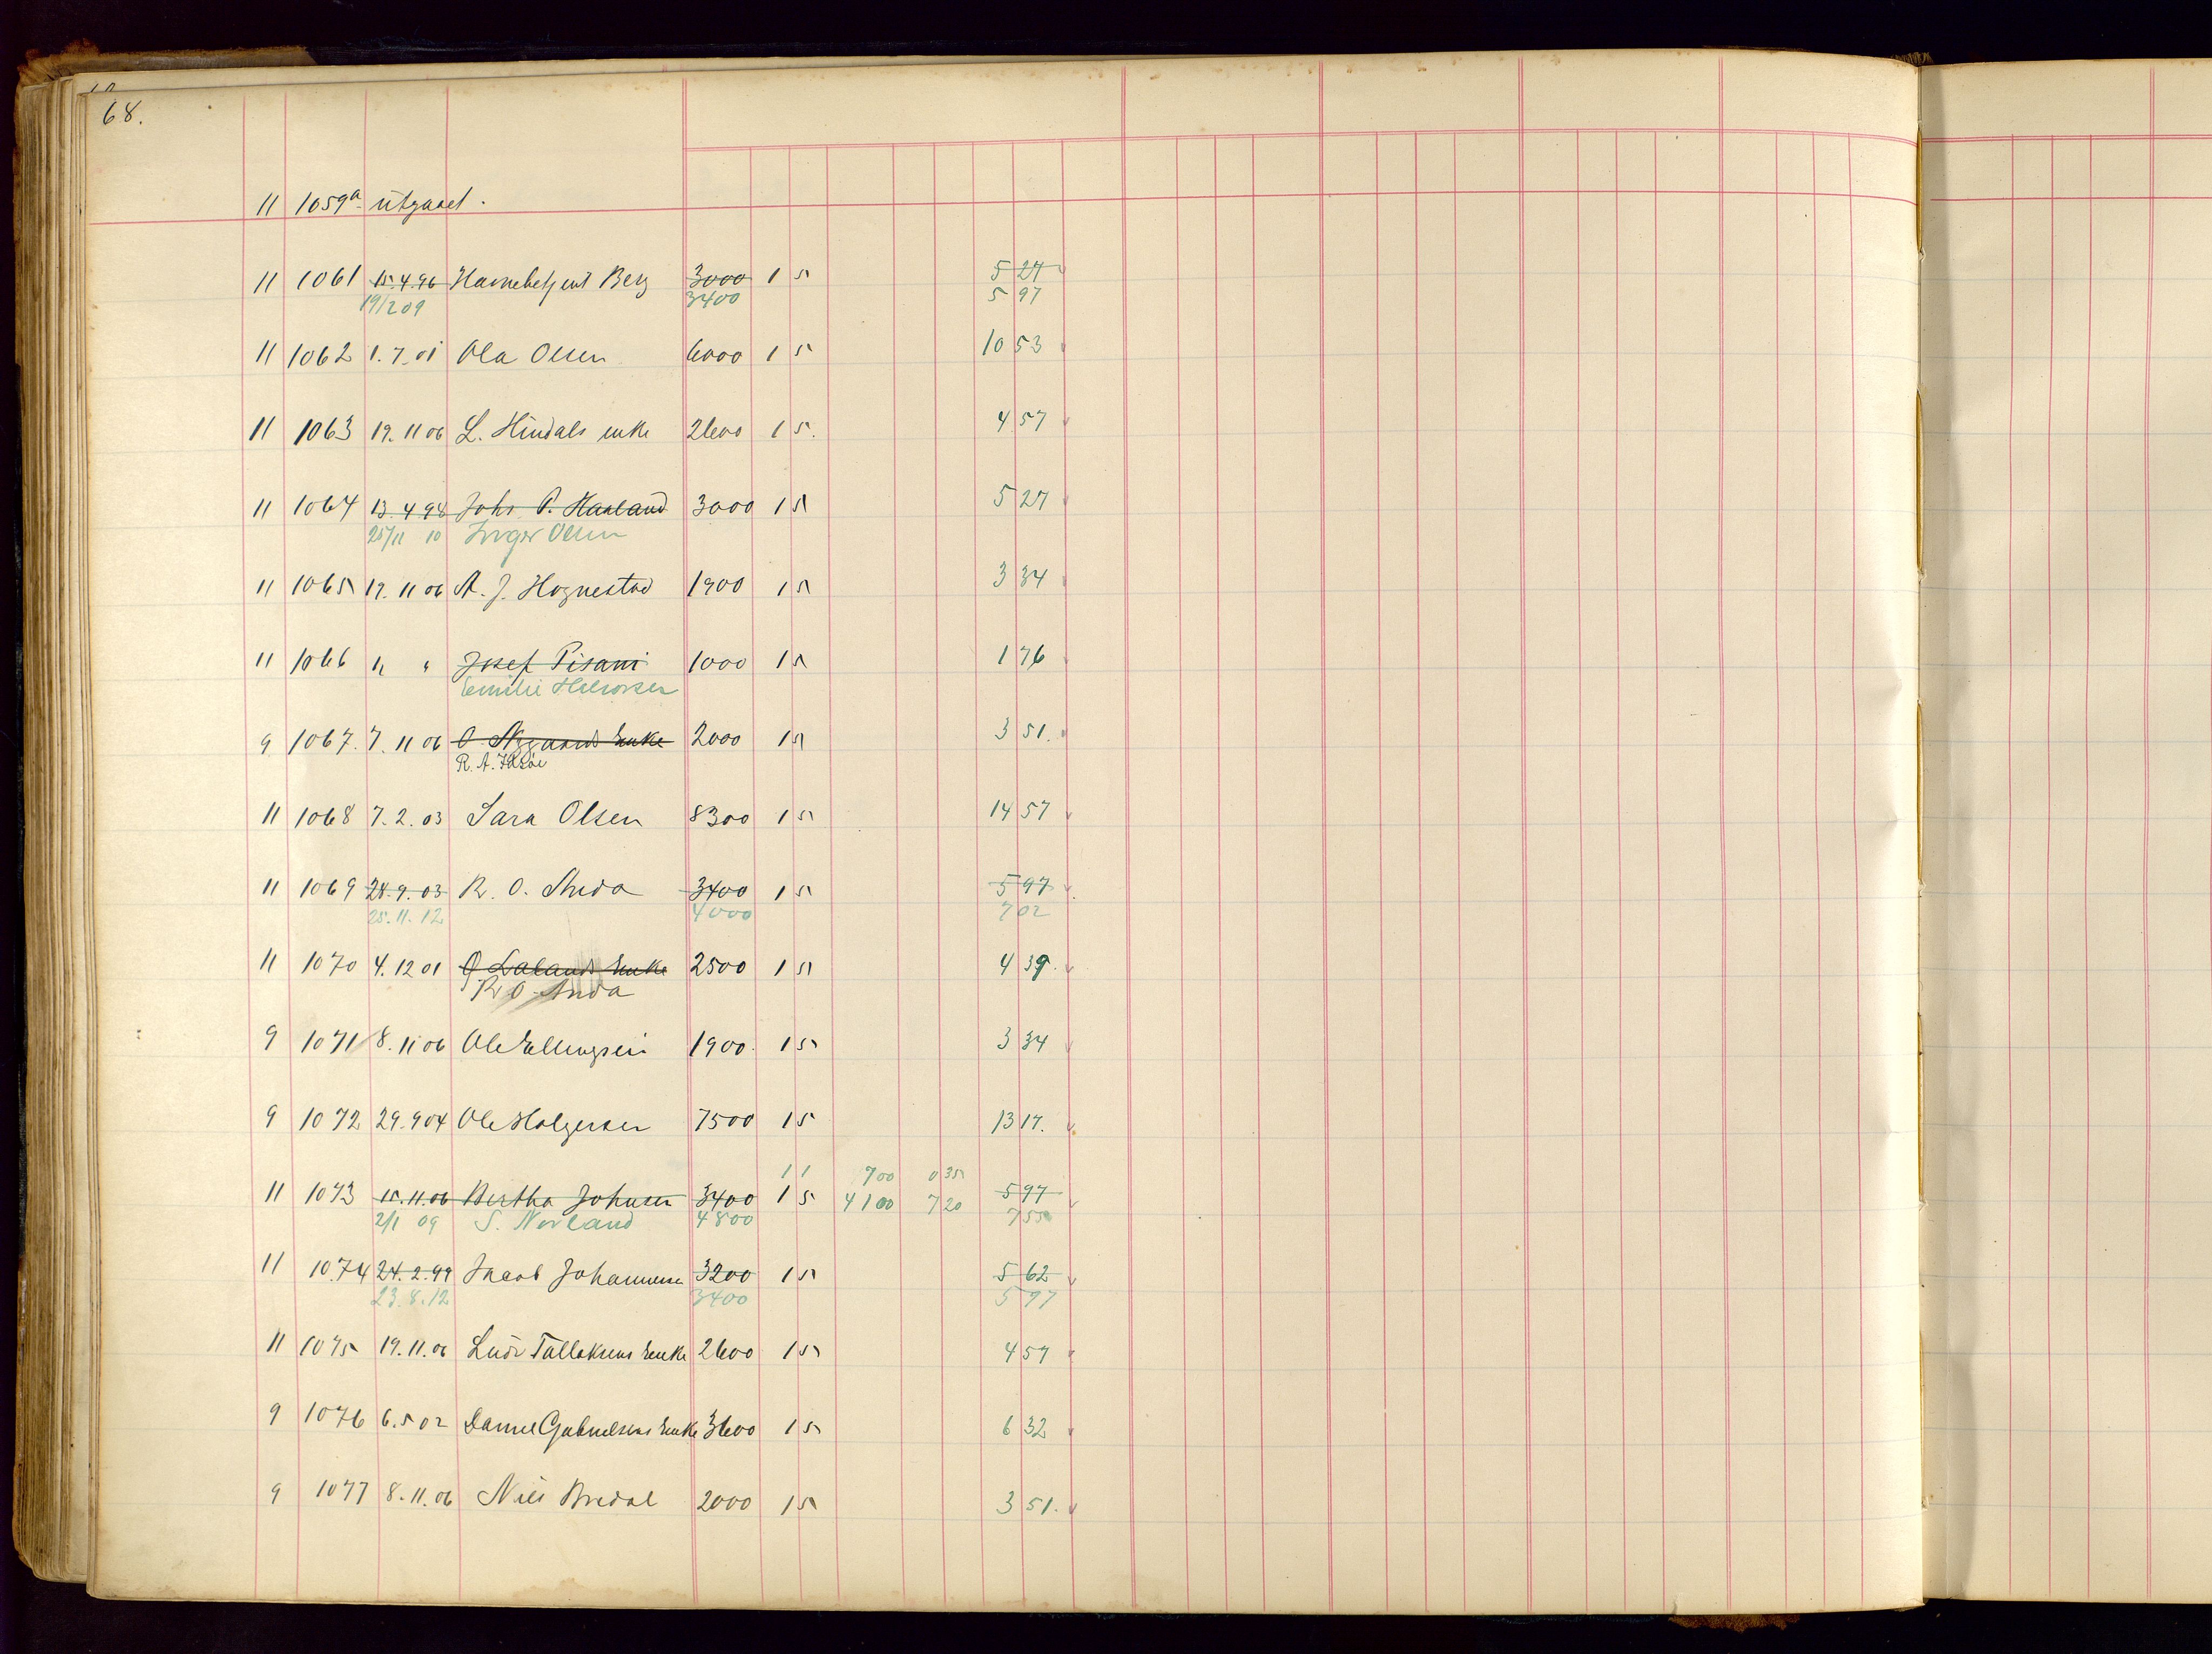 68.
11 1059a utgaaet.
11 1061 15.4.96 Havnebetjent Berg 3000 1 5 5 27
19/2 09 3400 5 97
11 1062 1.7.01 Ola Olsen 6000 1 5 10 53
11 1063 19.11 06 L. Hindals enke 2600 1 5. 4 57
11 1064 13.4 98 Johs P. Haaland 3000 1 5 5 27
25/11 10 Inger Olsen
11 1065 19.11 06 A. J. Hognestad 1900 1 5 3 34
11 1066 " " Josef Pisani 1000 1 5 1 76
Emilie
9 1067. 7.11 06 O. Enke 2000 1 5 3 51.
R. A.
11 1068 7.2.03 Sara Olsen 8300 1 5 14 57
11 1069 28.9.03 R. O. Anda 3400 1 5 5 97
25.11.12 4000 7 02
11 1070 4.12 01 Enke 2500 1 5 4 39.
R O Anda
9 1071 8.11 06 Ole Ellingsen 1900. 1 5 3 34
9 1072 29.9 04 Ole Holgersen 7500 1 5 13 17.
1 1 700 0 35
11 1073 15.11.06 Bertha Johnsen 3400 1 5 4100 7 20 5 97
2/1 09 S. Norland 4800 7 55
11 1074 24.2.99 Jacob Johannessen 3200 1 5 5 62
23.8.12 3400 5 97
11 1075 19.11.06 Ludv Tallaksens Enke 2600 1 5 4 57
9 1076 6.5 02 Daniel Gabrielsens Enke 3600 1 5 6 32
9 1077 8.11.06 Nils Bredal 2000 1 5 3 51.